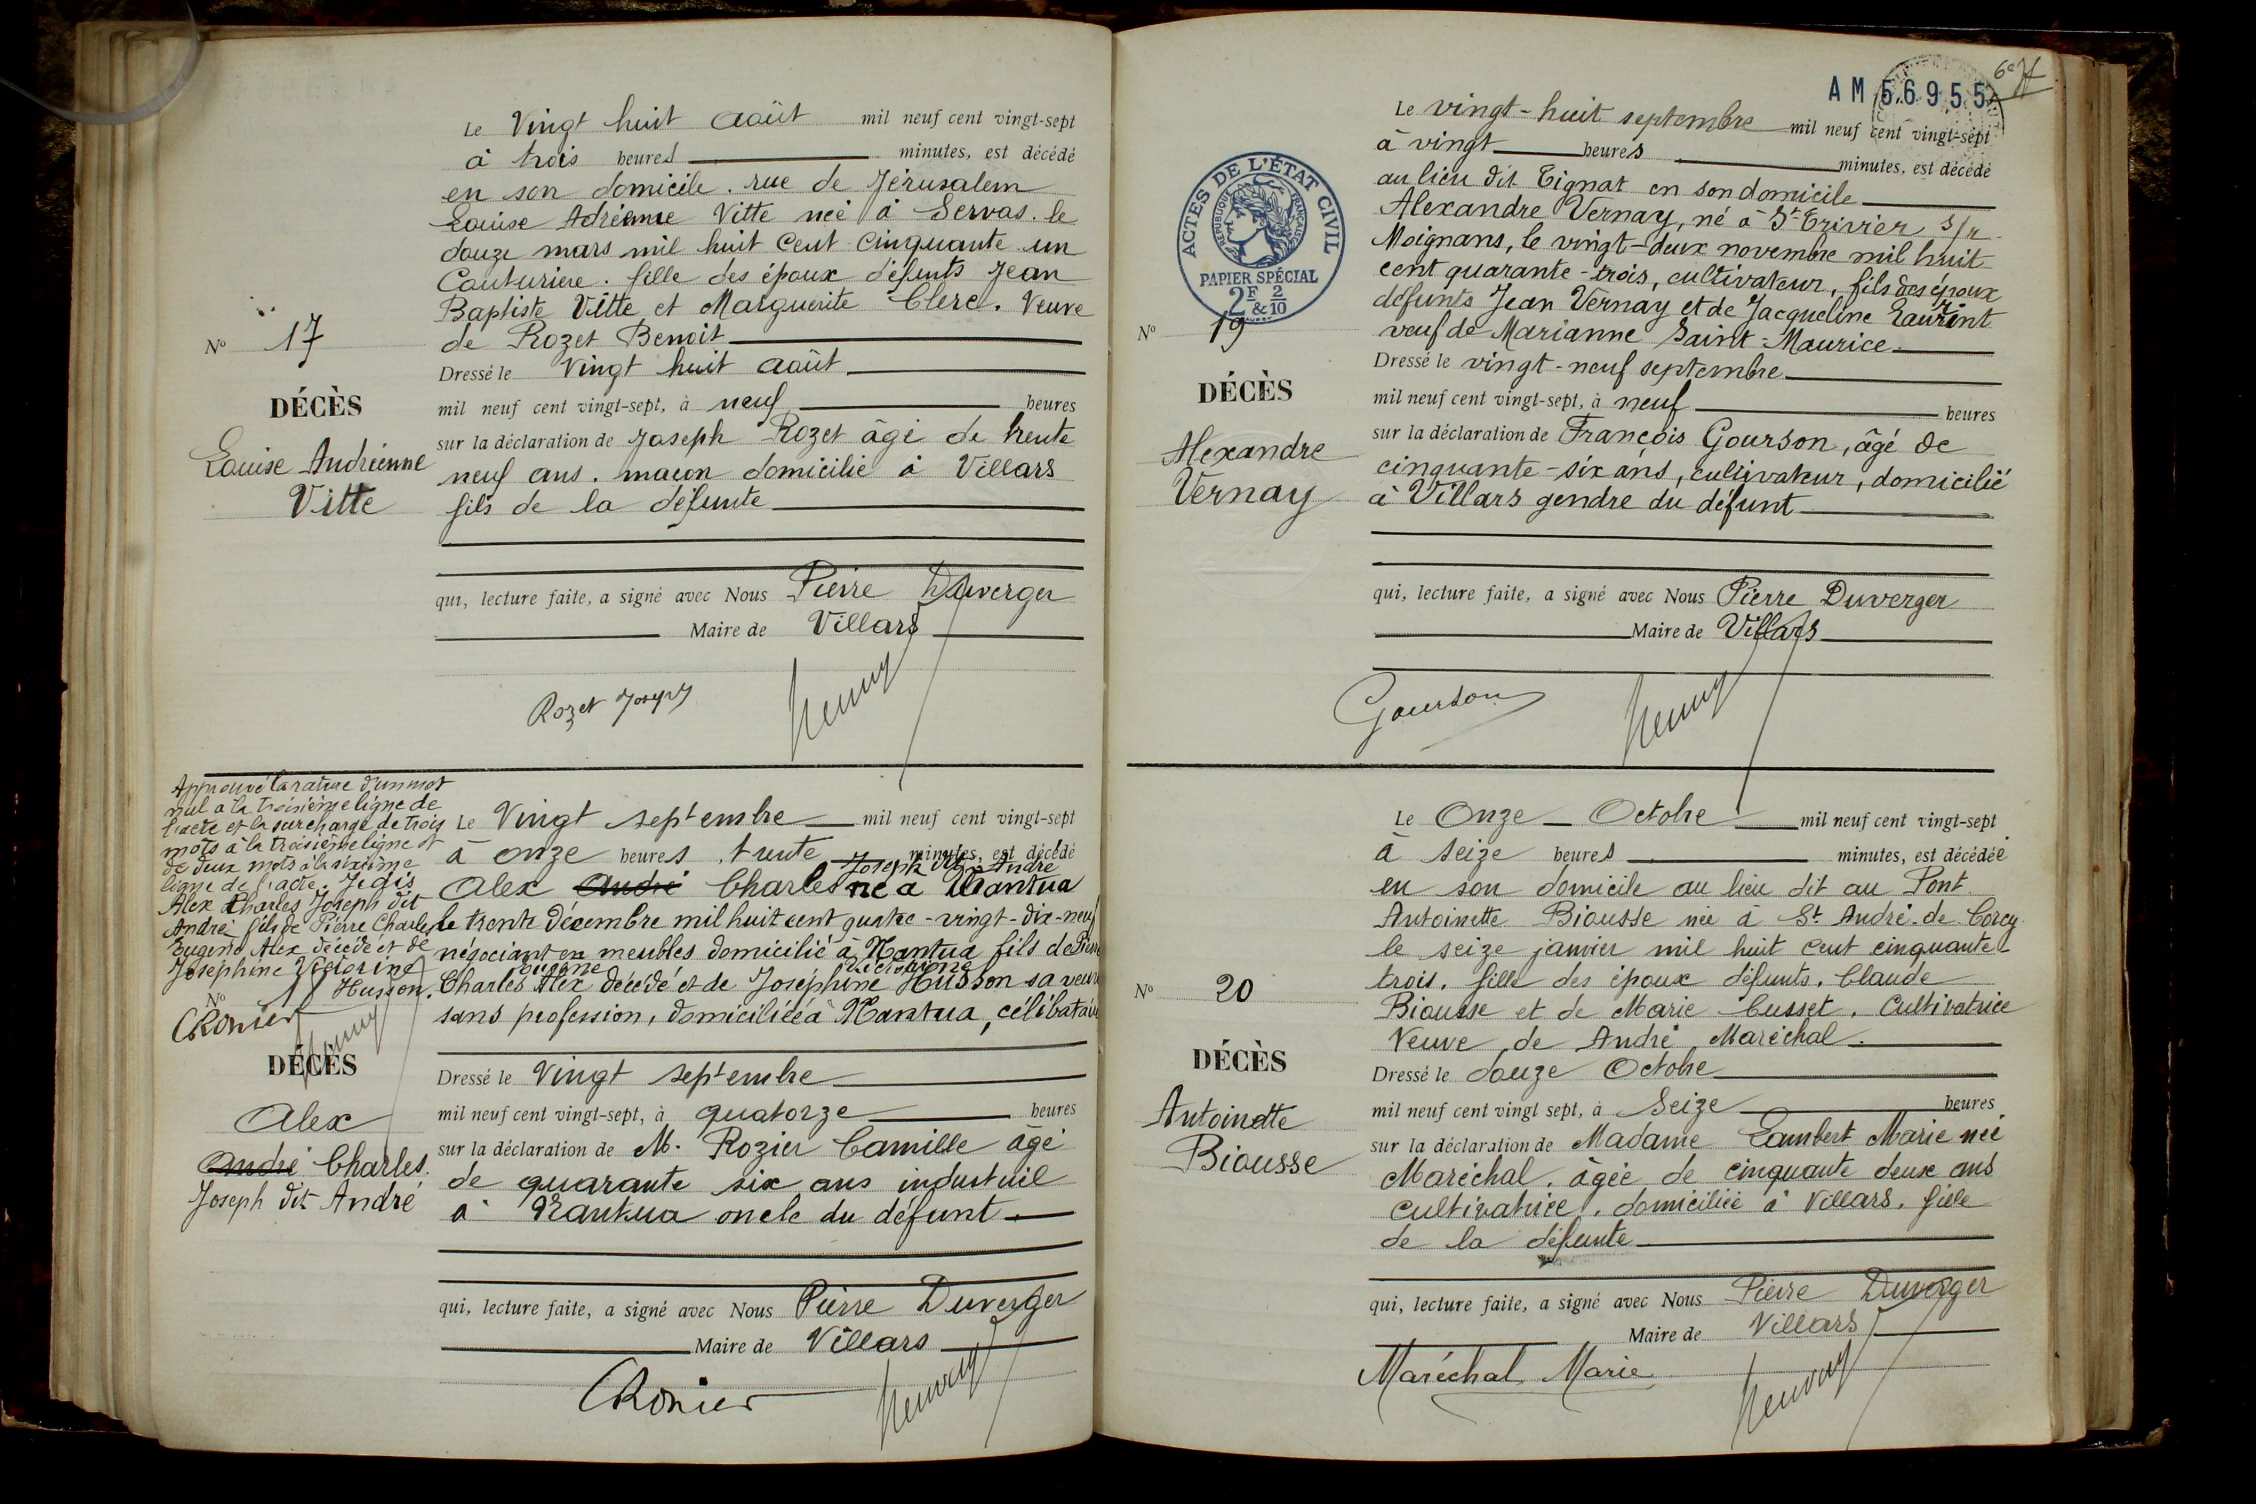 Le Vingt huit Août mil neuf cent vingt-sept
à trois heures minutes, est décédé
en son domicile. rue de Jérusalem
Louise Adrienne Vitte neé à Servas. le
douze mars mil huit cent cinquante un
Couturiere. fille des époux défunts Jean
Baptiste Vitte et Marguerite Clerc. Veuve
de Rozet Benoit
Nº 17
DÉCÈS
Louise Andrienne
Vitte
Dressé le Vingt huit Août
mil neuf cent vingt-sept, à neuf heures
sur la déclaration de Joseph Rozet âgé de trente
neuf ans. maçon domicilié à Villars
fils de la défunte
qui, lecture faite, a signé avec Nous Pierre Duverger
Maire de Villars
Rozet Joseph
Approuvé la rature d'un mot
nul à la troisième ligne de
l'acte et la surcharge de trois
mots à la troisième ligne et
de deux mots à la sixième
ligne de l'acte. Je dis
Alex Charles Joseph dit
André fils de Pierre Charles
Eugène Alex décédé et de
Joséphine Victorine
Husson.
Nº 18
CRozier
DÉCÈS
Alex
André Charles
Joseph dit André
Le Vingt septembre mil neuf cent vingt-sept
à onze heures trente minutes, est décédé
Joseph dit André
Alex André Charles né à Nantua
le trente décembre mil huit cent quatre-vingt-dix-neuf
négociant en meubles domicilié à Nantua fils de Pierre
eugène victorine
Charles Alex décédé et de Joséphine Husson sa veuve
sans profession, domiciliée à Nantua, célibataire
Dressé le Vingt septembre
mil neuf cent vingt-sept, à quatorze heures
sur la déclaration de M. Rozier Camille âgé
de quarante six ans industriel
à Nantua oncle du défunt
qui, lecture faite, a signé avec Nous Pierre Duverger
Maire de Villars
CRozier
AM 56955
6e
ACTES DE L'ÉTAT CIVIL
RÉPUBLIQUE FRANÇAISE
PAPIER SPÉCIAL
2F & 2/10
Le vingt-huit septembre mil neuf cent vingt-sept
à vingt heures minutes, est décédé
au lieu dit Tignat en son domicile
Alexandre Vernay, né à St-Trivier s/r
Moignans, le vingt-deux novembre mil huit
cent quarante-trois, cultivateur, fils des époux
défunts Jean Vernay et de Jacqueline Laurent
veuf de Marianne Saint-Maurice
Nº 19
DÉCÈS
Alexandre
Vernay
Dressé le vingt-neuf septembre
mil neuf cent vingt-sept, à neuf heures
sur la déclaration de François Gourson, âgé de
cinquante-six ans, cultivateur, domicilié
à Villars gendre du défunt
qui, lecture faite, a signé avec Nous Pierre Duverger
Maire de Villars
Gourson
Le Onze Octobre mil neuf cent vingt-sept
à seize heures minutes, est décédée
en son domicile au lieu dit au Pont
Antoinette Biousse née à St. André-de-Corcy
le seize janvier mil huit cent cinquante-
trois. fille des époux défunts. Claude
Biousse et de Marie Cusset. Cultivatrice
Veuve de André Maréchal.
Nº 20
DÉCÈS
Antoinette
Biousse
Dressé le douze Octobre
mil neuf cent vingt sept, à Seize heures
sur la déclaration de Madame Lambert Marie née
Maréchal. âgée de cinquante deux ans
cultivatrice. domiciliée à Villars. fille
de la défunte
qui, lecture faite, a signé avec Nous Pierre Duverger
Maire de Villars
Maréchal Marie